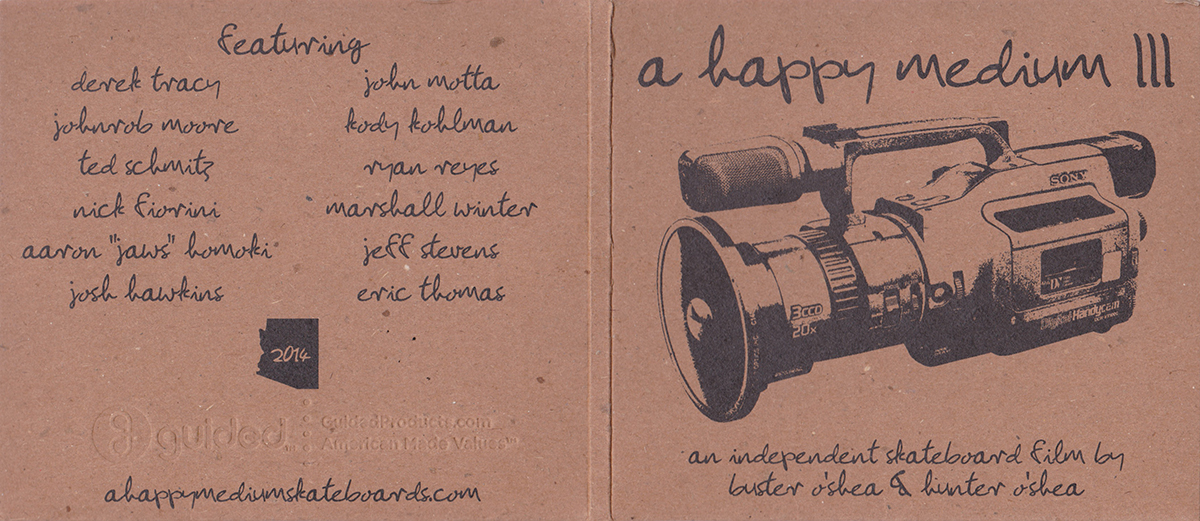 featuring
derek tracy
johnrob moore
ted schmitz
nick fiorini
aaron "jaws" homoki
josh hawkins
john motta
kody kohlman
ryan reyes
marshall winter
jeff stevens
eric thomas
2014
guided
GuidedProducts.com
American Made Values™
ahappymediumskateboards.com
a happy medium III
SONY
3CCD
20x
Mini DV
Digital Handycam
an independent skateboard film by
buster o'shea & hunter o'shea